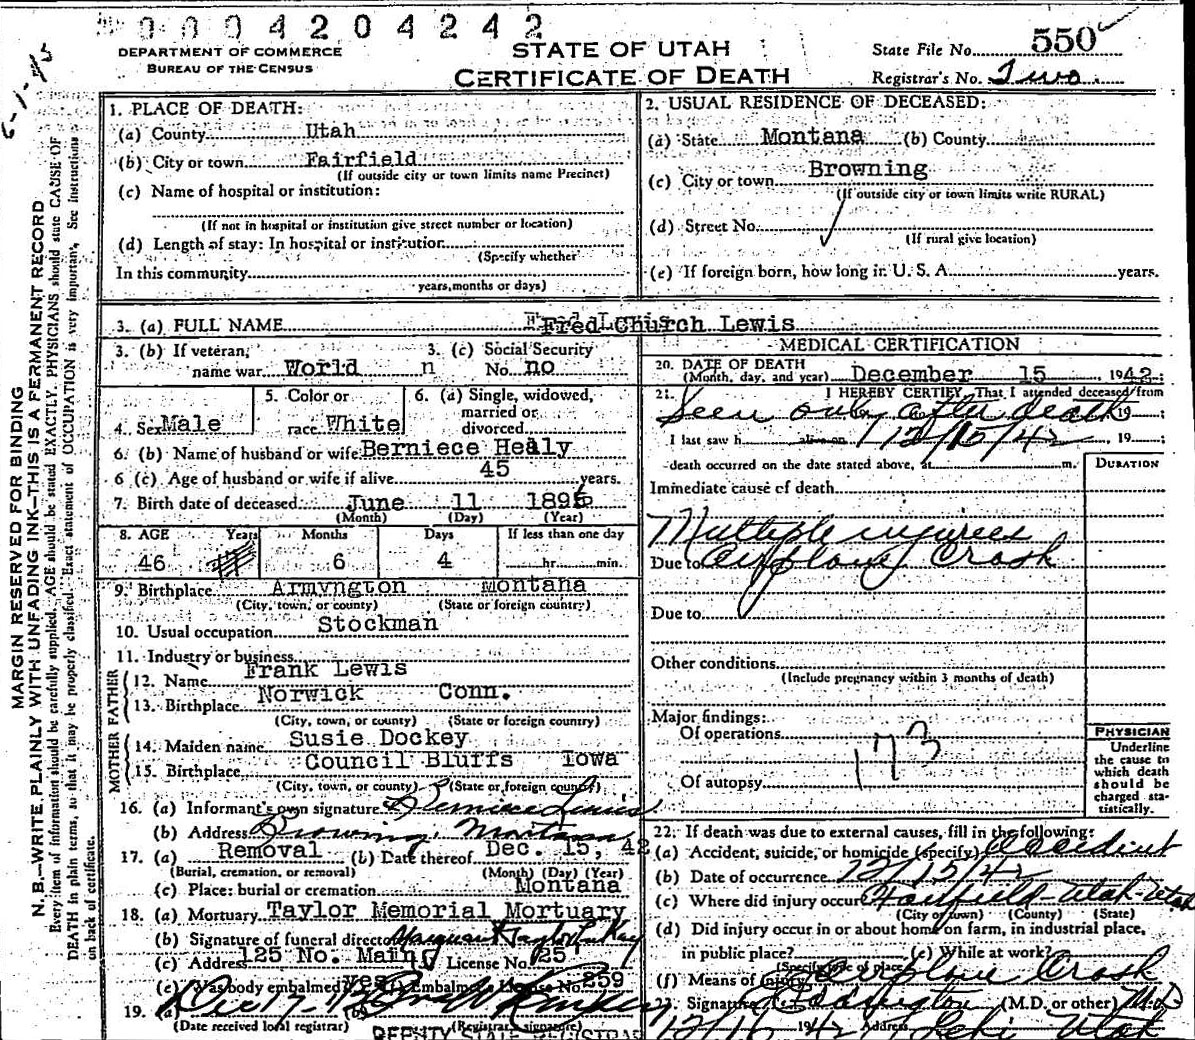 0004204242
DEPARTMENT OF COMMERCE
BUREAU OF THE CENSUS
STATE OF UTAH
CERTIFICATE OF DEATH
State File No. 550
Registrar's No. Two
MARGIN RESERVED FOR BINDING
N. B.—WRITE PLAINLY WITH UNFADING INK—THIS IS A PERMANENT RECORD
Every item of information should be carefully supplied. AGE should be stated EXACTLY. PHYSICIANS should state CAUSE OF
DEATH in plain terms, so that it may be properly classified. Exact statement of OCCUPATION is very important. See instructions
on back of certificate.
1. PLACE OF DEATH:
(a) County Utah
(b) City or town Fairfield
(If outside city or town limits name Precinct)
(c) Name of hospital or institution:
(If not in hospital or institution give street number or location)
(d) Length of stay: In hospital or institution
(Specify whether
In this community
years, months or days)
2. USUAL RESIDENCE OF DECEASED:
(a) State Montana (b) County
(c) City or town Browning
(If outside city or town limits write RURAL)
(d) Street No.
(If rural give location)
(e) If foreign born, how long in U. S. A. years.
3. (a) FULL NAME Fred Church Lewis
3. (b) If veteran, name war World n
3. (c) Social Security No. no
4. Sex Male
5. Color or race White
6. (a) Single, widowed, married or divorced
6. (b) Name of husband or wife Berniece Healy
6 (c) Age of husband or wife if alive 45 years.
7. Birth date of deceased June 11 1896
(Month) (Day) (Year)
8. AGE Years Months Days If less than one day
46 6 4 hr. min.
9. Birthplace Armyngton Montana
(City, town, or county) (State or foreign country)
10. Usual occupation Stockman
11. Industry or business
FATHER
12. Name Frank Lewis
13. Birthplace Norwick Conn.
(City, town, or county) (State or foreign country)
MOTHER
14. Maiden name Susie Dockey
15. Birthplace Council Bluffs Iowa
(City, town, or county) (State or foreign county)
16. (a) Informant's own signature Berniece Lewis
(b) Address Browning, Montana
17. (a) Removal (b) Date thereof Dec. 15, 42
(Burial, cremation, or removal) (Month) (Day) (Year)
(c) Place: burial or cremation Montana
18. (a) Mortuary Taylor Memorial Mortuary
(b) Signature of funeral director
(c) Address 125 No. Main License No. 257
(e) Was body embalmed? yes Embalmer's License No. 259
19. (a) Dec 17-42
(Date received local registrar) (Registrar's signature)
DEPUTY STATE REGISTRAR
MEDICAL CERTIFICATION
20. DATE OF DEATH
(Month, day, and year) December 15 1942
21. I HEREBY CERTIFY, That I attended deceased from
Seen only after death 19
I last saw h alive on 12/15/42, 19
death occurred on the date stated above, at m.
DURATION
Immediate cause of death
Multiple injuries
Due to Airplane Crash
Due to
Other conditions
(Include pregnancy within 3 months of death)
Major findings:
Of operations
173
Of autopsy
PHYSICIAN
Underline
the cause to
which death
should be
charged sta-
tistically.
22. If death was due to external causes, fill in the following:
(a) Accident, suicide, or homicide (specify) Accident
(b) Date of occurrence 12/15/42
(c) Where did injury occur Fairfield-Utah-Utah
(City or town) (County) (State)
(d) Did injury occur in or about home on farm, in industrial place,
in public place? (e) While at work?
(Specify type of place)
(f) Means of injury Airplane Crash
23. Signature Eddington (M.D. or other) M.D.
12/16 1942 Address Lehi Utah